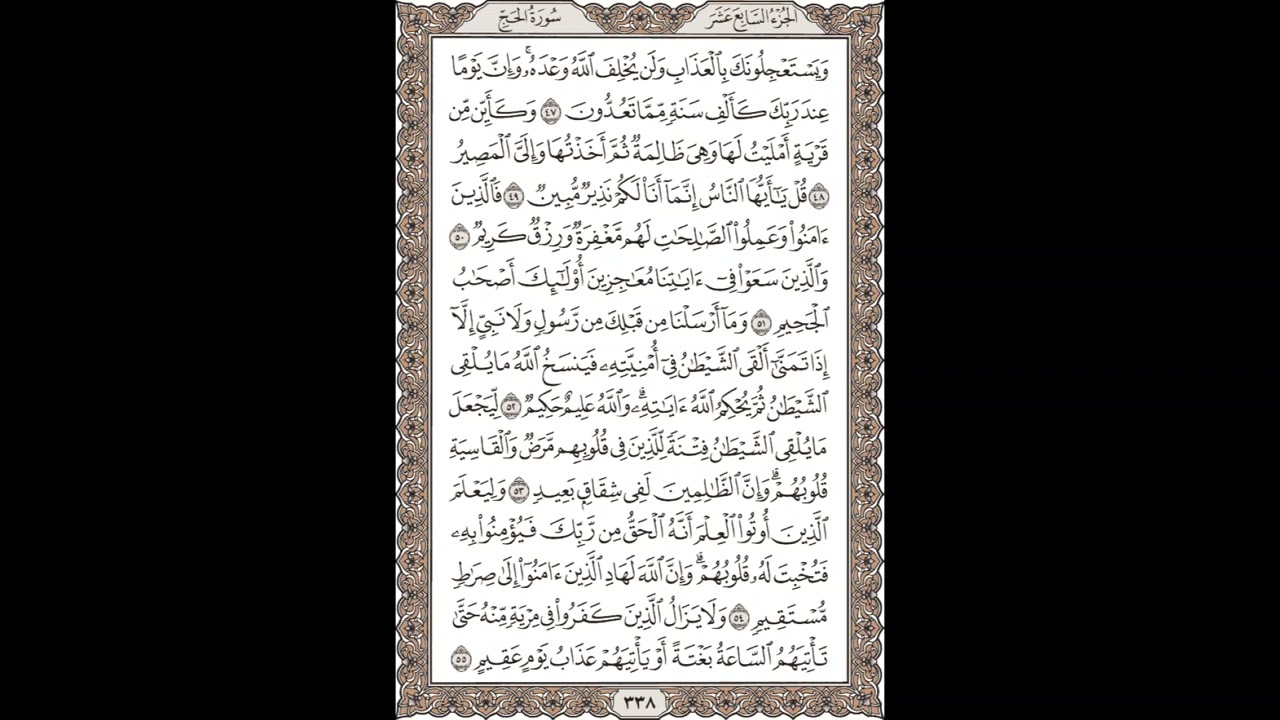 الجزء السابع عشر
سورة الحج
وَيَسْتَعْجِلُونَكَ بِٱلْعَذَابِ وَلَن يُخْلِفَ ٱللَّهُ وَعْدَهُۥۚ وَإِنَّ يَوْمًا
عِندَ رَبِّكَ كَأَلْفِ سَنَةٍ مِّمَّا تَعُدُّونَ ٤٧ وَكَأَيِّن مِّن
قَرْيَةٍ أَمْلَيْتُ لَهَا وَهِىَ ظَالِمَةٌ ثُمَّ أَخَذْتُهَا وَإِلَىَّ ٱلْمَصِيرُ
٤٨ قُلْ يَـٰٓأَيُّهَا ٱلنَّاسُ إِنَّمَآ أَنَا۠ لَكُمْ نَذِيرٌ مُّبِينٌ ٤٩ فَٱلَّذِينَ
ءَامَنُوا۟ وَعَمِلُوا۟ ٱلصَّـٰلِحَـٰتِ لَهُم مَّغْفِرَةٌ وَرِزْقٌ كَرِيمٌ ٥٠
وَٱلَّذِينَ سَعَوْا۟ فِىٓ ءَايَـٰتِنَا مُعَـٰجِزِينَ أُو۟لَـٰٓئِكَ أَصْحَـٰبُ
ٱلْجَحِيمِ ٥١ وَمَآ أَرْسَلْنَا مِن قَبْلِكَ مِن رَّسُولٍ وَلَا نَبِىٍّ إِلَّآ
إِذَا تَمَنَّىٰٓ أَلْقَى ٱلشَّيْطَـٰنُ فِىٓ أُمْنِيَّتِهِۦ فَيَنسَخُ ٱللَّهُ مَا يُلْقِى
ٱلشَّيْطَـٰنُ ثُمَّ يُحْكِمُ ٱللَّهُ ءَايَـٰتِهِۦۗ وَٱللَّهُ عَلِيمٌ حَكِيمٌ ٥٢ لِّيَجْعَلَ
مَا يُلْقِى ٱلشَّيْطَـٰنُ فِتْنَةً لِّلَّذِينَ فِى قُلُوبِهِم مَّرَضٌ وَٱلْقَاسِيَةِ
قُلُوبُهُمْۗ وَإِنَّ ٱلظَّـٰلِمِينَ لَفِى شِقَاقٍۭ بَعِيدٍ ٥٣ وَلِيَعْلَمَ
ٱلَّذِينَ أُوتُوا۟ ٱلْعِلْمَ أَنَّهُ ٱلْحَقُّ مِن رَّبِّكَ فَيُؤْمِنُوا۟ بِهِۦ
فَتُخْبِتَ لَهُۥ قُلُوبُهُمْۗ وَإِنَّ ٱللَّهَ لَهَادِ ٱلَّذِينَ ءَامَنُوٓا۟ إِلَىٰ صِرَٰطٍ
مُّسْتَقِيمٍ ٥٤ وَلَا يَزَالُ ٱلَّذِينَ كَفَرُوا۟ فِى مِرْيَةٍ مِّنْهُ حَتَّىٰ
تَأْتِيَهُمُ ٱلسَّاعَةُ بَغْتَةً أَوْ يَأْتِيَهُمْ عَذَابُ يَوْمٍ عَقِيمٍ ٥٥
٣٣٨